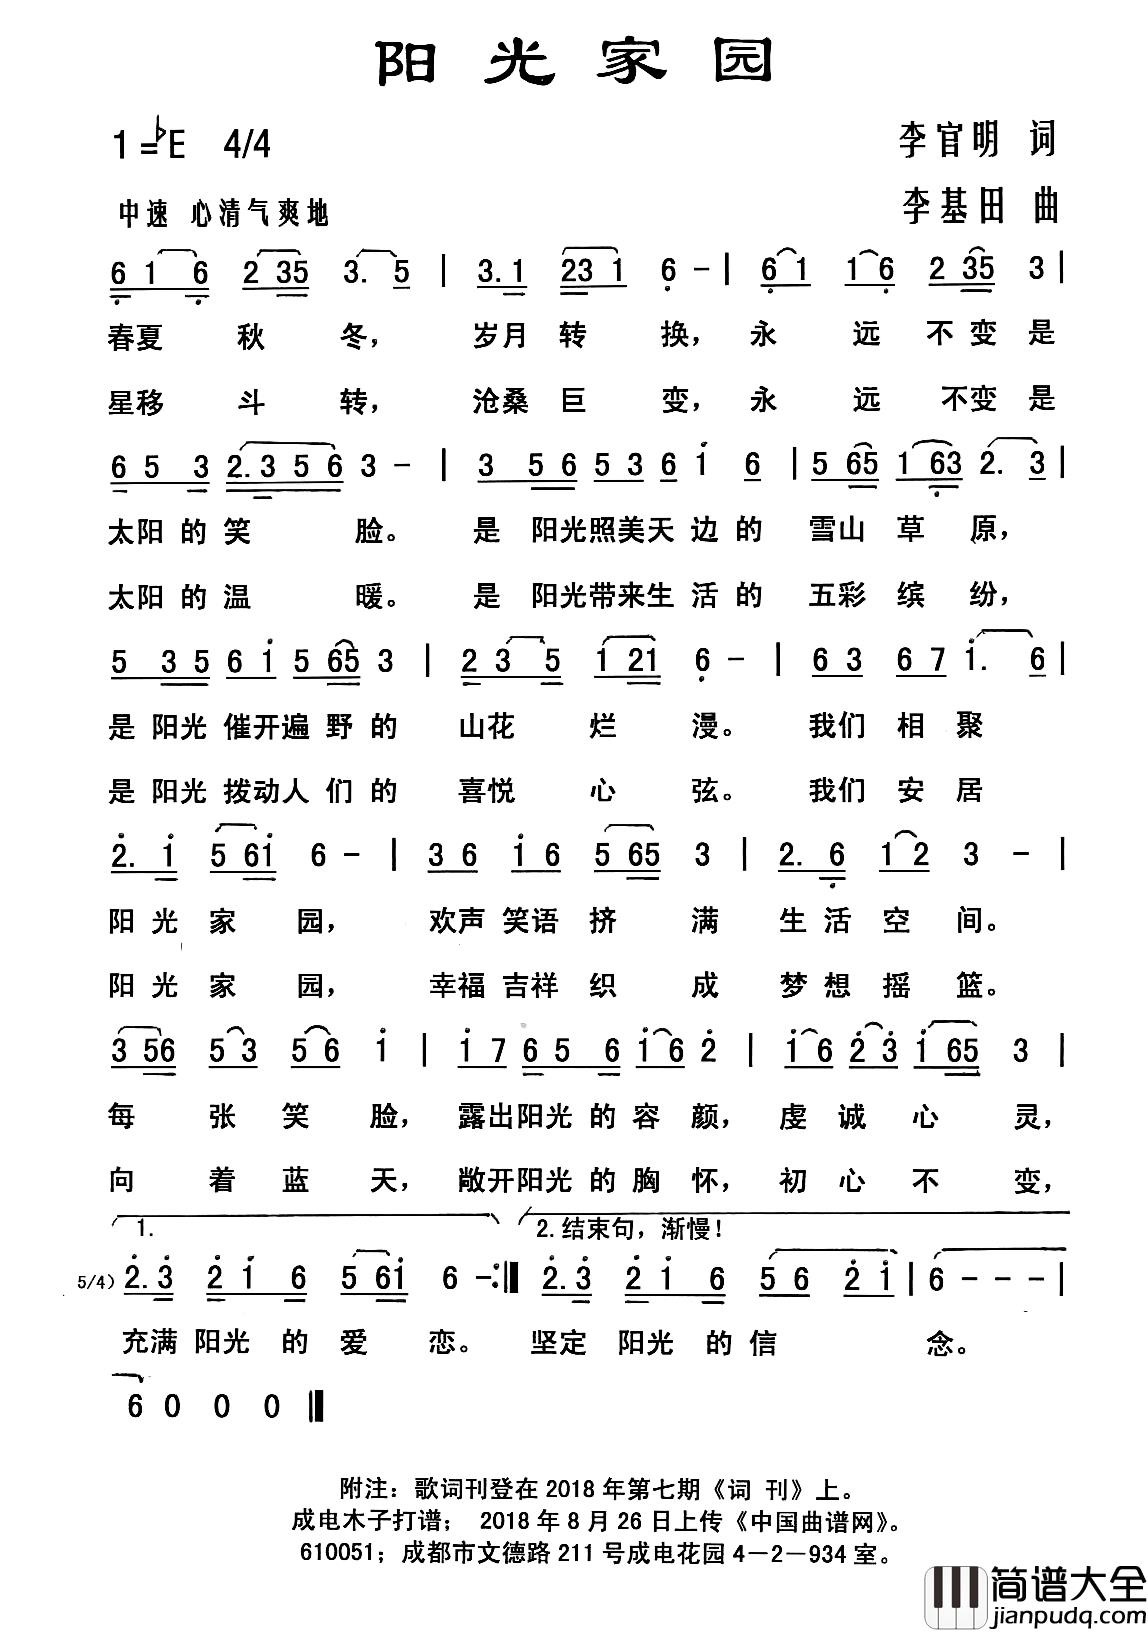 阳光家园
1=♭E 4/4
李官明 词
中速 心清气爽地
李基田 曲
6 1 6 2 35 3. 5 | 3.1 23 1 6 - | 6 1 1 6 2 35 3 |
春夏 秋 冬， 岁月 转 换， 永 远 不 变 是
星移 斗 转， 沧桑 巨 变， 永 远 不变 是
6 5 3 2.3 5 6 3 - | 3 5 6 5 3 6 i 6 | 5 65 1 63 2. 3 |
太阳 的 笑 脸。 是 阳光照美天 边 的 雪山 草 原，
太阳 的 温 暖。 是 阳光带来生 活 的 五彩 缤 纷，
5 3 5 6 i 5 65 3 | 2 3 5 1 21 6 - | 6 3 6 7 i. 6 |
是 阳光 催开遍 野 的 山花 烂 漫。 我们 相 聚
是 阳光 拨动人 们 的 喜悦 心 弦。 我们 安 居
2. i 5 6i 6 - | 3 6 i 6 5 65 3 | 2. 6 1 2 3 - |
阳 光 家 园， 欢声 笑语 挤 满 生 活 空 间。
阳 光 家 园， 幸福 吉祥 织 成 梦 想 摇 篮。
3 56 5 3 5 6 i | i 7 6 5 6 i 6 2 | i 6 2 3 i 65 3 |
每 张 笑 脸， 露出阳光 的 容 颜， 虔 诚 心 灵，
向 着 蓝 天， 敞开阳光 的 胸 怀， 初 心 不 变，
1. 2.结束句，渐慢！
5/4) 2.3 2 i 6 5 6i 6 -:‖ 2.3 2 i 6 5 6 2 i | 6 - - - |
充满 阳光 的 爱 恋。 坚定 阳光 的 信 念。
6 0 0 0 ‖
附注：歌词刊登在 2018 年第七期《词 刊》上。
成电木子打谱； 2018 年 8 月 26 日上传《中国曲谱网》。
610051；成都市文德路 211 号成电花园 4－2－934 室。
简谱大全
jianpudq.com